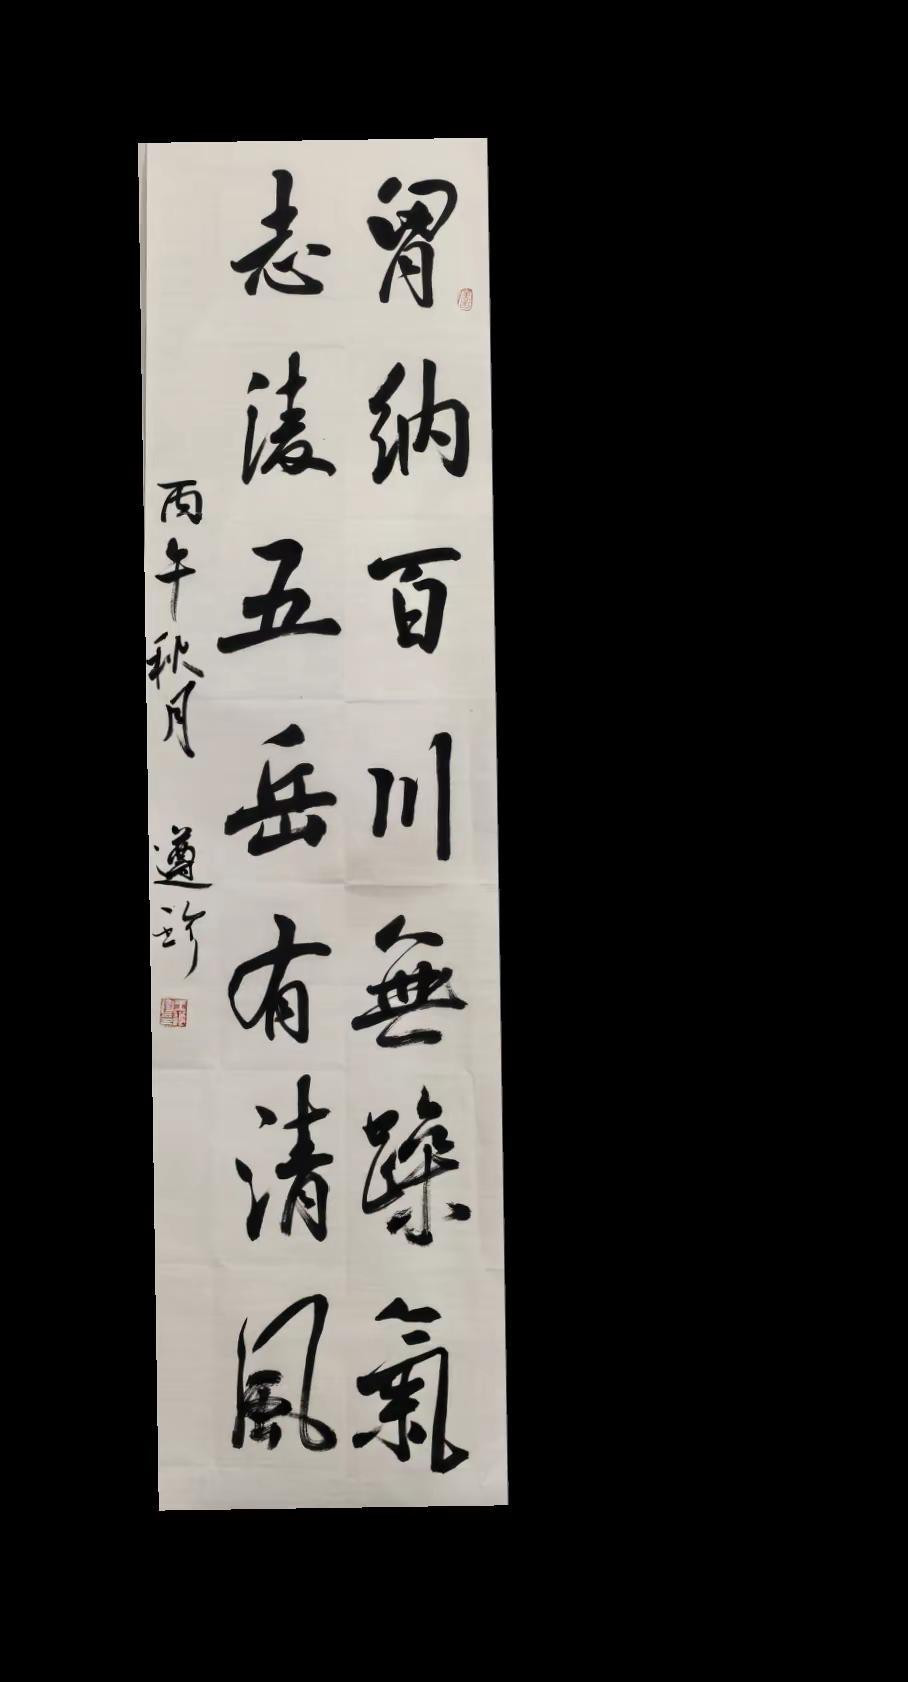 胷納百川無躁氣
志淩五岳有清風
丙午秋月 遵珍